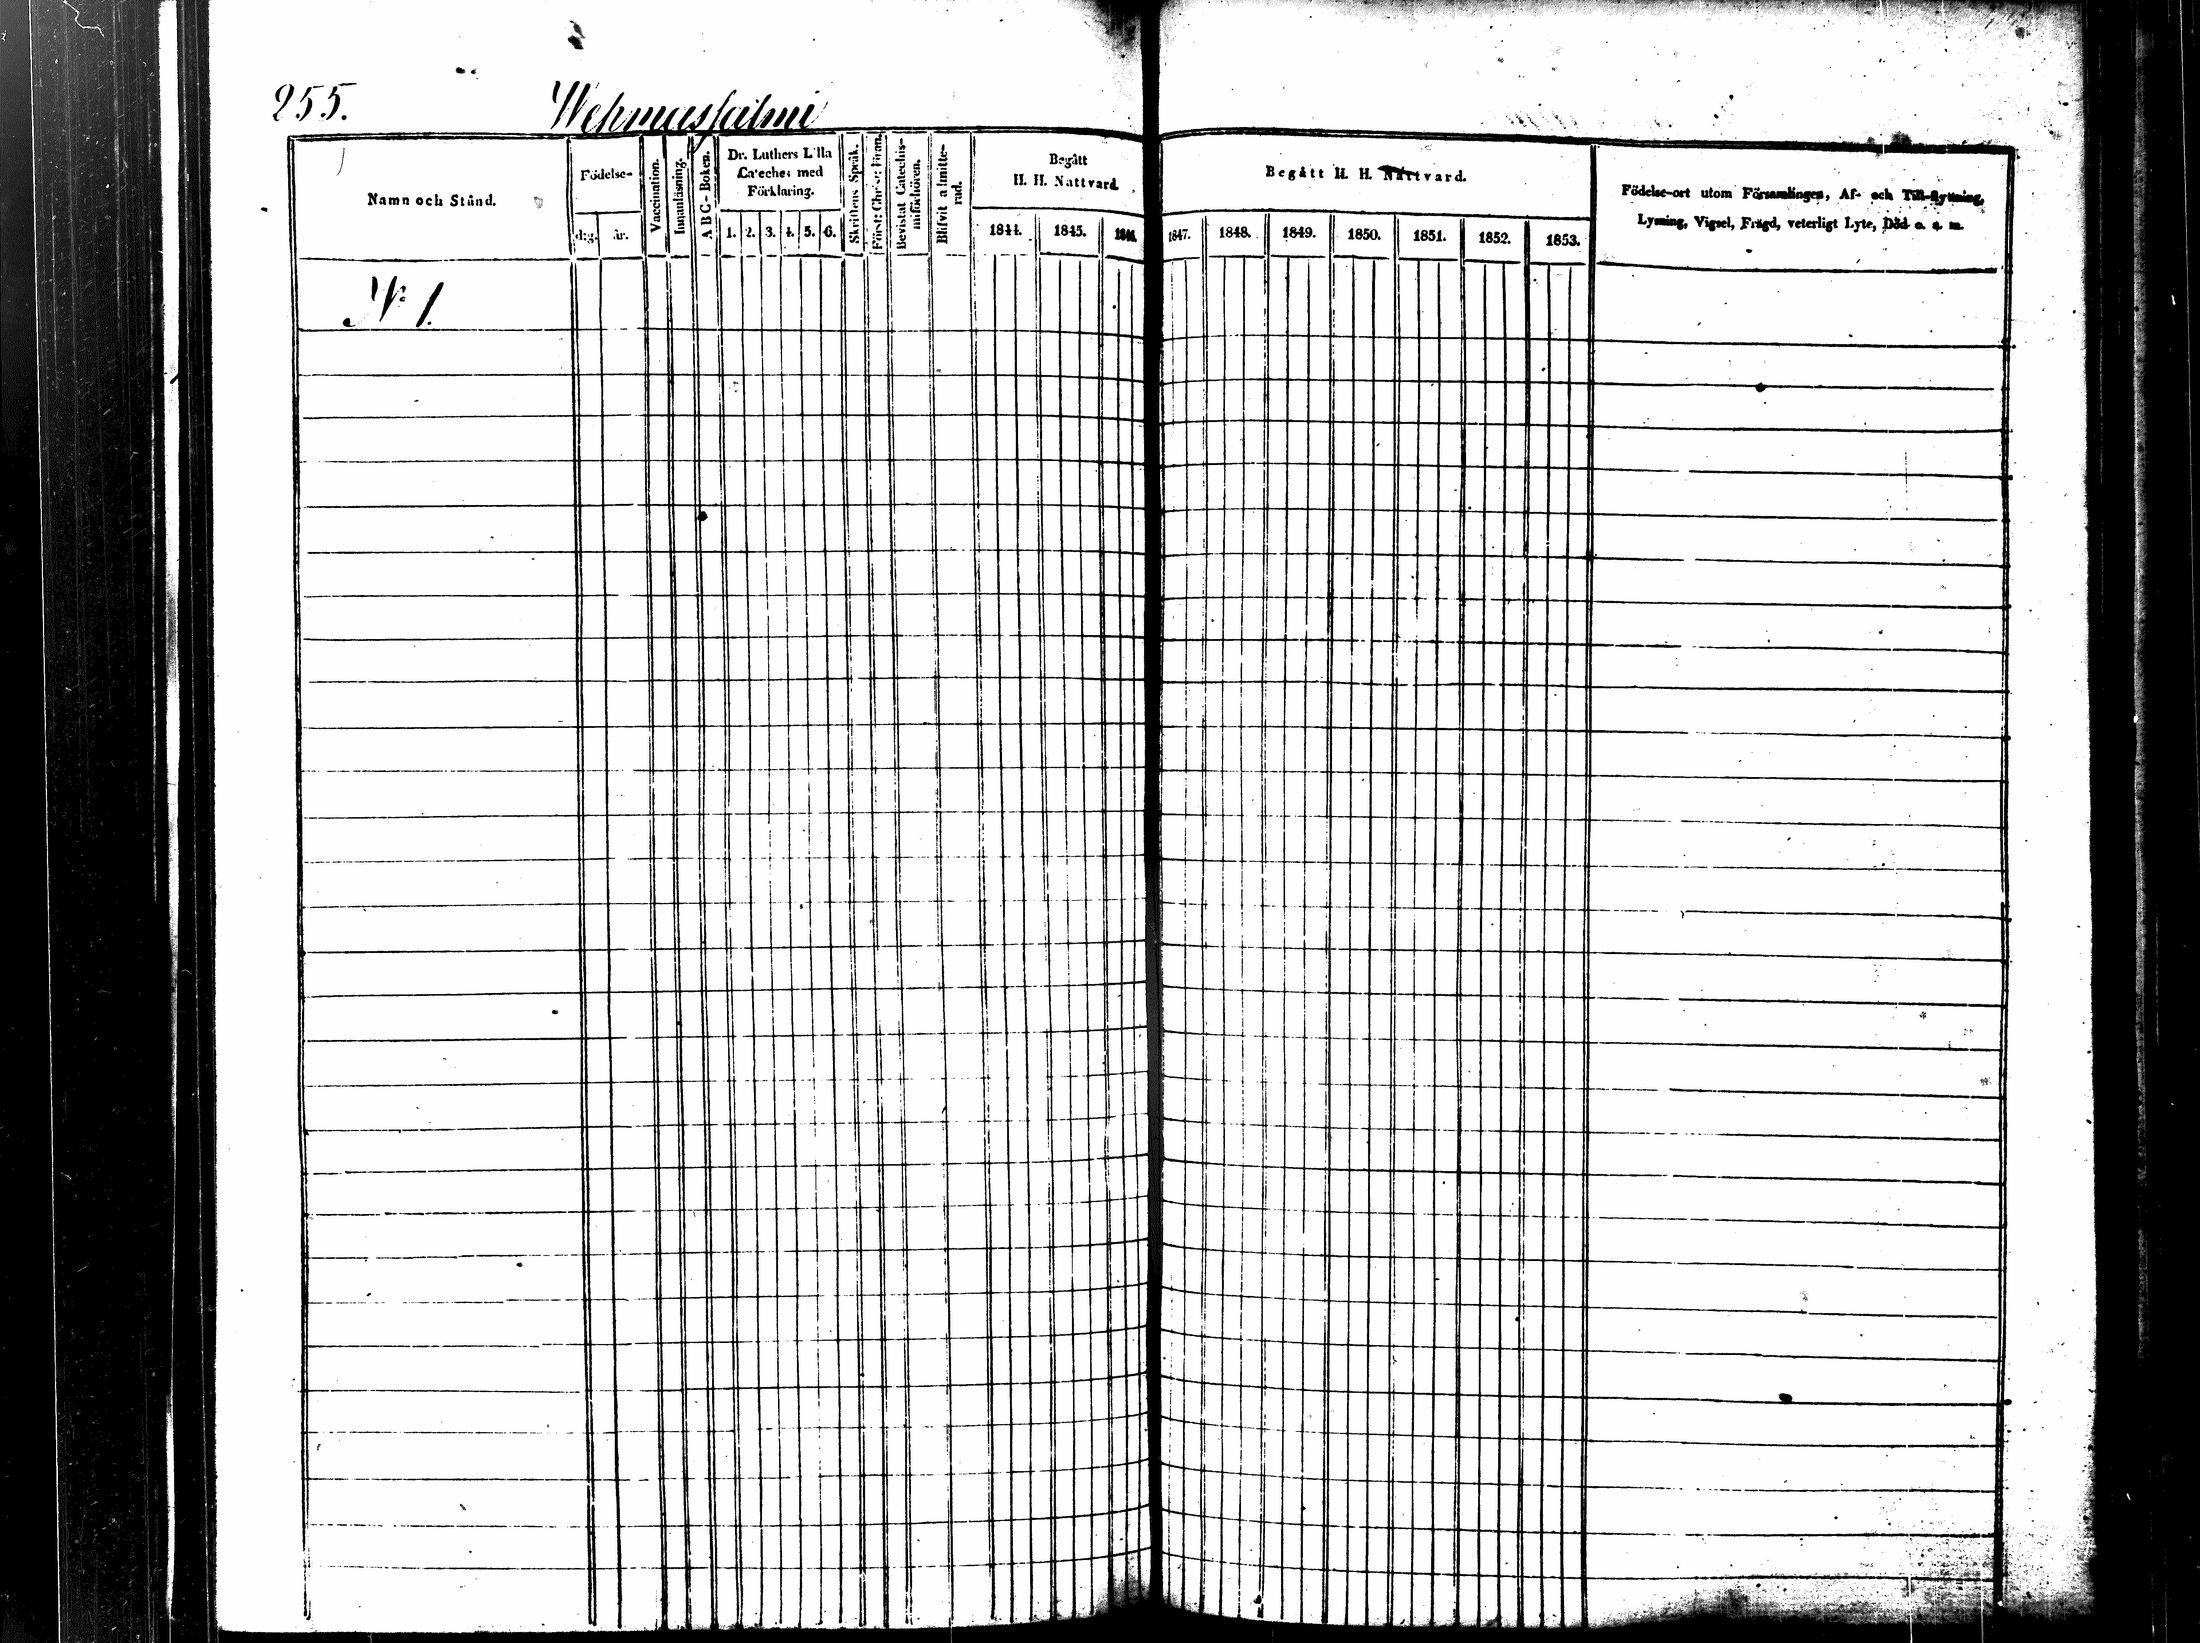 255. Wehmassalmi
Namn och Stånd.
Födelse-
dag.
år.
Vaccination.
Innanläsning.
A B C-Boken.
Dr. Luthers Lilla
Cateches med
Förklaring.
1. 2. 3. 4. 5. 6.
Skriftens Språk.
Bevistat Catechis-
Begått
H. H. Nattvard.
1844. 1845. 1846.
Begått H. H. Nattvard.
1847. 1848. 1849. 1850. 1851. 1852. 1853.
Födelse-ort utom Församlingen, Af- och Till-flyttning,
Lysning, Vigsel, Frägd, veterligt Lyte, Död o. s. m.
N:o 1.